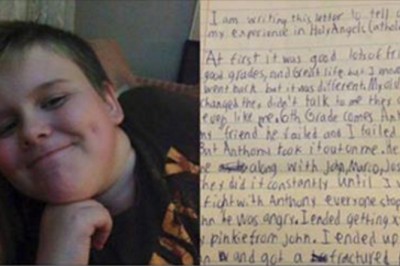 I am writing this letter to tell
my experience in Holy Angels Catholic
At first it was good lots of frie
good grades, and Great life. but I moved
went back but it was different. My old
changed they didn't talk to me they
even like me. 6th Grade comes. Anth
my friend he failed and I failed
But Anthony took it out on me.
with John, Marco, Jos
they did it constantly until I
fight with Anthony everyone stop
he was angry. I ended getting
pinkie from John. I ended up
and got a fractured